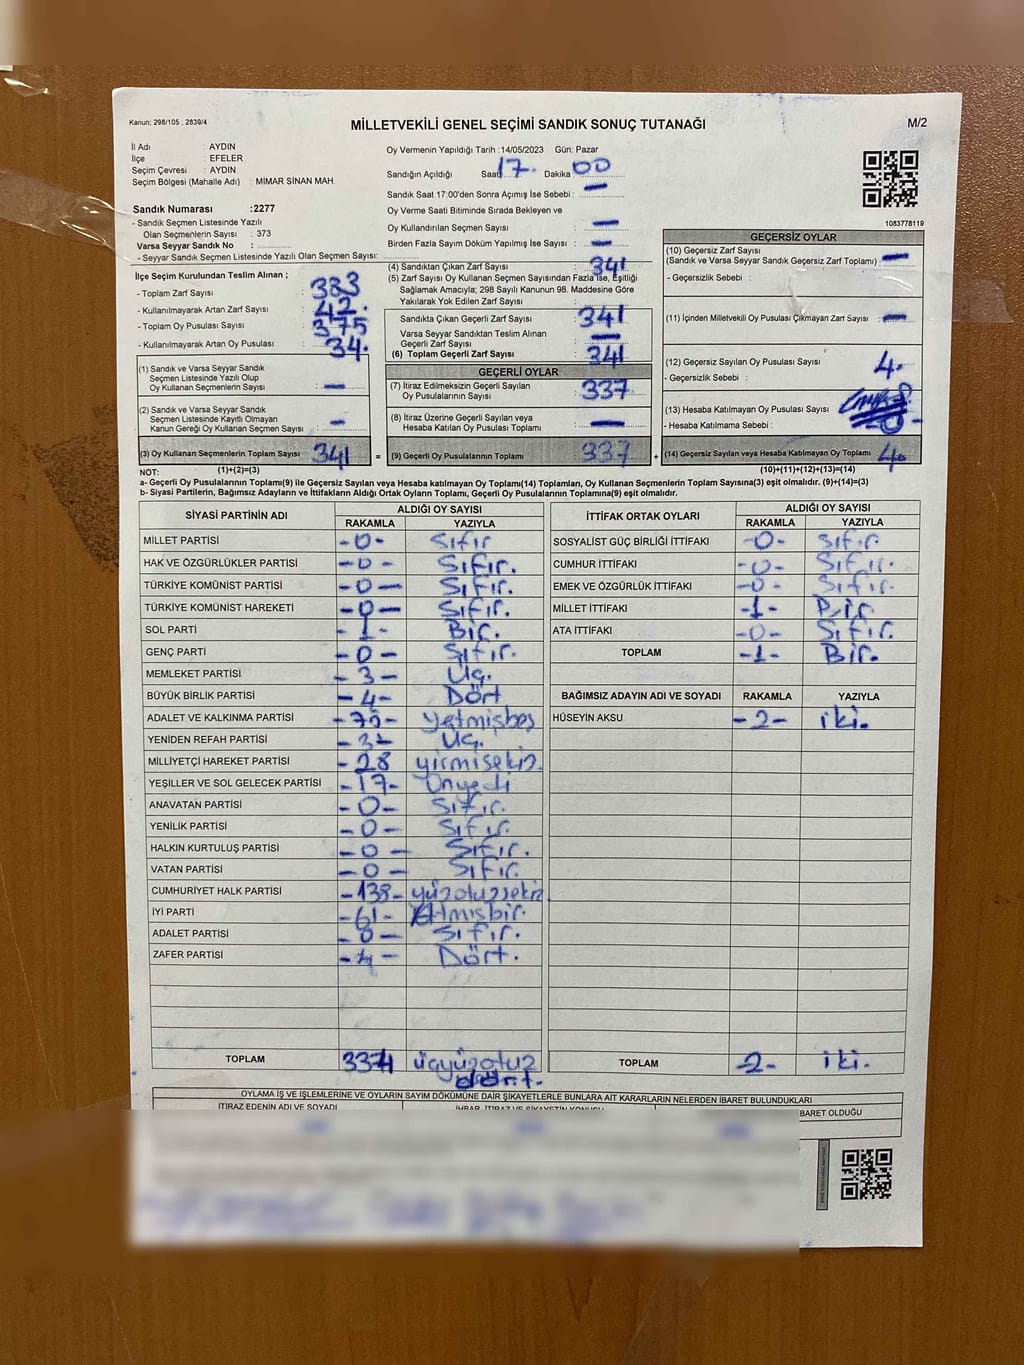 Kanun: 298/105 , 2839/4
MİLLETVEKİLİ GENEL SEÇİMİ SANDIK SONUÇ TUTANAĞI
M/2
İl Adı : AYDIN
İlçe : EFELER
Seçim Çevresi : AYDIN
Seçim Bölgesi (Mahalle Adı) : MİMAR SİNAN MAH.
Sandık Numarası :2277
- Sandık Seçmen Listesinde Yazılı
Olan Seçmenlerin Sayısı : 373
Varsa Seyyar Sandık No :
- Seyyar Sandık Seçmen Listesinde Yazılı Olan Seçmen Sayısı:
İlçe Seçim Kurulundan Teslim Alınan ;
- Toplam Zarf Sayısı : 383
- Kullanılmayarak Artan Zarf Sayısı : 42.
- Toplam Oy Pusulası Sayısı : 375
- Kullanılmayarak Artan Oy Pusulası : 34.
(1) Sandık ve Varsa Seyyar Sandık
Seçmen Listesinde Yazılı Olup
Oy Kullanan Seçmenlerin Sayısı : —
(2) Sandık ve Varsa Seyyar Sandık
Seçmen Listesinde Kayıtlı Olmayan
Kanun Gereği Oy Kullanan Seçmen Sayısı : -
(3) Oy Kullanan Seçmenlerin Toplam Sayısı 341 =
Oy Vermenin Yapıldığı Tarih :14/05/2023 Gün: Pazar
Sandığın Açıldığı Saat 17. Dakika 00
Sandık Saat 17:00'den Sonra Açımış İse Sebebi : —
Oy Verme Saati Bitiminde Sırada Bekleyen ve
Oy Kullandırılan Seçmen Sayısı : —
Birden Fazla Sayım Döküm Yapılmış İse Sayısı : —
(4) Sandıktan Çıkan Zarf Sayısı : 341
(5) Zarf Sayısı Oy Kullanan Seçmen Sayısından Fazla İse, Eşitliği
Sağlamak Amacıyla; 298 Sayılı Kanunun 98. Maddesine Göre
Yakılarak Yok Edilen Zarf Sayısı :
Sandıkta Çıkan Geçerli Zarf Sayısı : 341
Varsa Seyyar Sandıktan Teslim Alınan
Geçerli Zarf Sayısı : —
(6) Toplam Geçerli Zarf Sayısı : 341
GEÇERLİ OYLAR
(7) İtiraz Edilmeksizin Geçerli Sayılan
Oy Pusulalarının Sayısı : 337
(8) İtiraz Üzerine Geçerli Sayılan veya
Hesaba Katılan Oy Pusulası Toplamı : —
(9) Geçerli Oy Pusulalarının Toplamı 337 +
1083778119
GEÇERSİZ OYLAR
(10) Geçersiz Zarf Sayısı
(Sandık ve Varsa Seyyar Sandık Geçersiz Zarf Toplamı) : —
- Geçersizlik Sebebi :
(11) İçinden Milletvekili Oy Pusulası Çıkmayan Zarf Sayısı : —
(12) Geçersiz Sayılan Oy Pusulası Sayısı : 4.
- Geçersizlik Sebebi :
(13) Hesaba Katılmayan Oy Pusulası Sayısı
- Hesaba Katılmama Sebebi :
(14) Geçersiz Sayılan veya Hesaba Katılmayan Oy Toplamı 4.
NOT: (1)+(2)=(3) (10)+(11)+(12)+(13)=(14)
a- Geçerli Oy Pusulalarının Toplamı(9) ile Geçersiz Sayılan veya Hesaba katılmayan Oy Toplamı(14) Toplamları, Oy Kullanan Seçmenlerin Toplam Sayısına(3) eşit olmalıdır. (9)+(14)=(3)
b- Siyasi Partilerin, Bağımsız Adayların ve İttifakların Aldığı Ortak Oyların Toplamı, Geçerli Oy Pusulalarının Toplamına(9) eşit olmalıdır.
SİYASİ PARTİNİN ADI ALDIĞI OY SAYISI
RAKAMLA YAZIYLA
MİLLET PARTİSİ -0- Sıfır
HAK VE ÖZGÜRLÜKLER PARTİSİ -0- Sıfır.
TÜRKİYE KOMÜNİST PARTİSİ -0- Sıfır.
TÜRKİYE KOMÜNİST HAREKETİ -0- Sıfır.
SOL PARTİ -1- Bir.
GENÇ PARTİ -0- Sıfır.
MEMLEKET PARTİSİ -3- Üç.
BÜYÜK BİRLİK PARTİSİ -4- Dört
ADALET VE KALKINMA PARTİSİ -75- yetmişbeş
YENİDEN REFAH PARTİSİ -3- Üç.
MİLLİYETÇİ HAREKET PARTİSİ -28 yirmisekiz
YEŞİLLER VE SOL GELECEK PARTİSİ -17- Onyedi
ANAVATAN PARTİSİ -0- Sıfır.
YENİLİK PARTİSİ -0- Sıfır.
HALKIN KURTULUŞ PARTİSİ -0- Sıfır.
VATAN PARTİSİ -0- Sıfır.
CUMHURİYET HALK PARTİSİ -138- yüzotuzsekiz
İYİ PARTİ -61- Atmışbir.
ADALET PARTİSİ -0- Sıfır.
ZAFER PARTİSİ -4- Dört.
TOPLAM 334 üçyüzotuz
dört.
İTTİFAK ORTAK OYLARI ALDIĞI OY SAYISI
RAKAMLA YAZIYLA
SOSYALİST GÜÇ BİRLİĞİ İTTİFAKI -0- Sıfır
CUMHUR İTTİFAKI -0- Sıfır.
EMEK VE ÖZGÜRLÜK İTTİFAKI -0- Sıfır
MİLLET İTTİFAKI -1- Bir.
ATA İTTİFAKI -0- Sıfır.
TOPLAM -1- Bir.
BAĞIMSIZ ADAYIN ADI VE SOYADI RAKAMLA YAZIYLA
HÜSEYİN AKSU -2- iki.
TOPLAM -2- iki.
OYLAMA İŞ VE İŞLEMLERİNE VE OYLARIN SAYIM DÖKÜMÜNE DAİR ŞİKAYETLERLE BUNLARA AİT KARARLARIN NELERDEN İBARET BULUNDUKLARI
İTİRAZ EDENİN ADI VE SOYADI İHBAR, İTİRAZ VE ŞİKAYETİN KONUSU BARET OLDUĞU